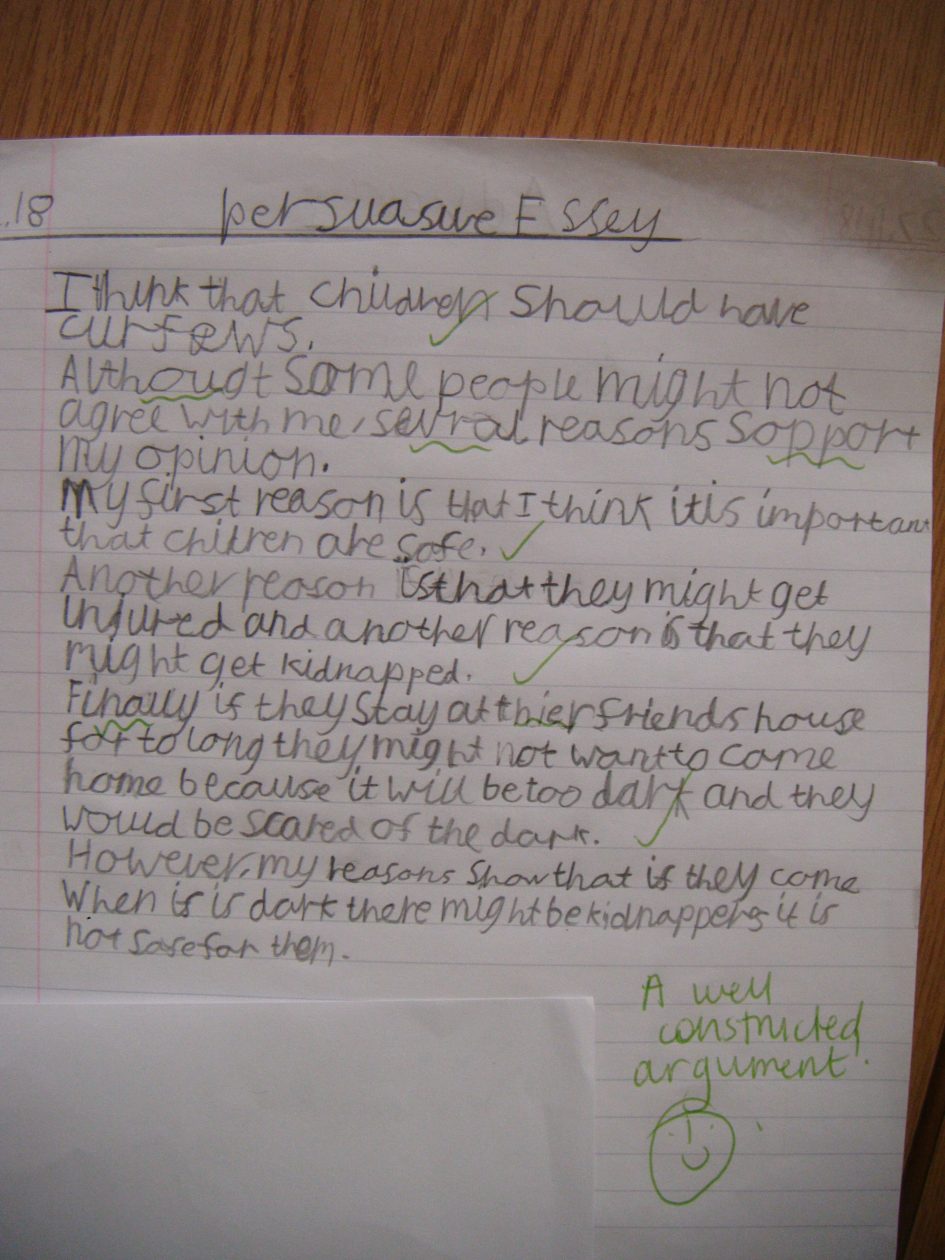 .18 persuasive Essey
I think that children should have
curfews.
Althougt some people might not
agree with me, sevral reasons sopport
my opinion.
My first reason is that I think it is important
that chilren are safe.
Another reason is that they might get
injured and another reason is that they
might get kidnapped.
Finally if they stay at thier friends house
for to long they might not want to come
home because it will be too dark and they
would be scared of the dark.
However, my reasons show that if they come
when is is dark there might be kidnappers it is
not safe for them.
A well
constructed
argument.